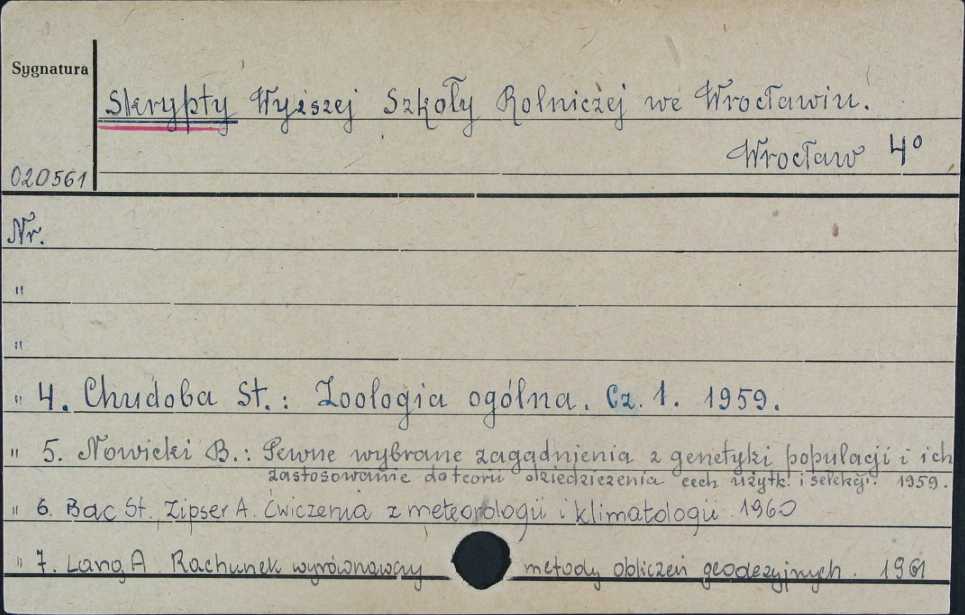 Sygnatura
Skrypty Wyższej Szkoły Rolniczej we Wrocławiu.
Wrocław 4°
020561
Nr.
"
"
" 4. Chudoba St.: Zoologia ogólna. Cz. 1. 1959.
" 5. Nowicki B.: Pewne wybrane zagadnienia z genetyki populacji i ich
zastosowanie do teorii dziedziczenia cech użytk. i selekcji. 1959.
" 6. Bac St., Zipser A. Ćwiczenia z meteorologii i klimatologii 1960
" 7. Lang A Rachunek wyrównawczy metody obliczeń geodezyjnych. 1961